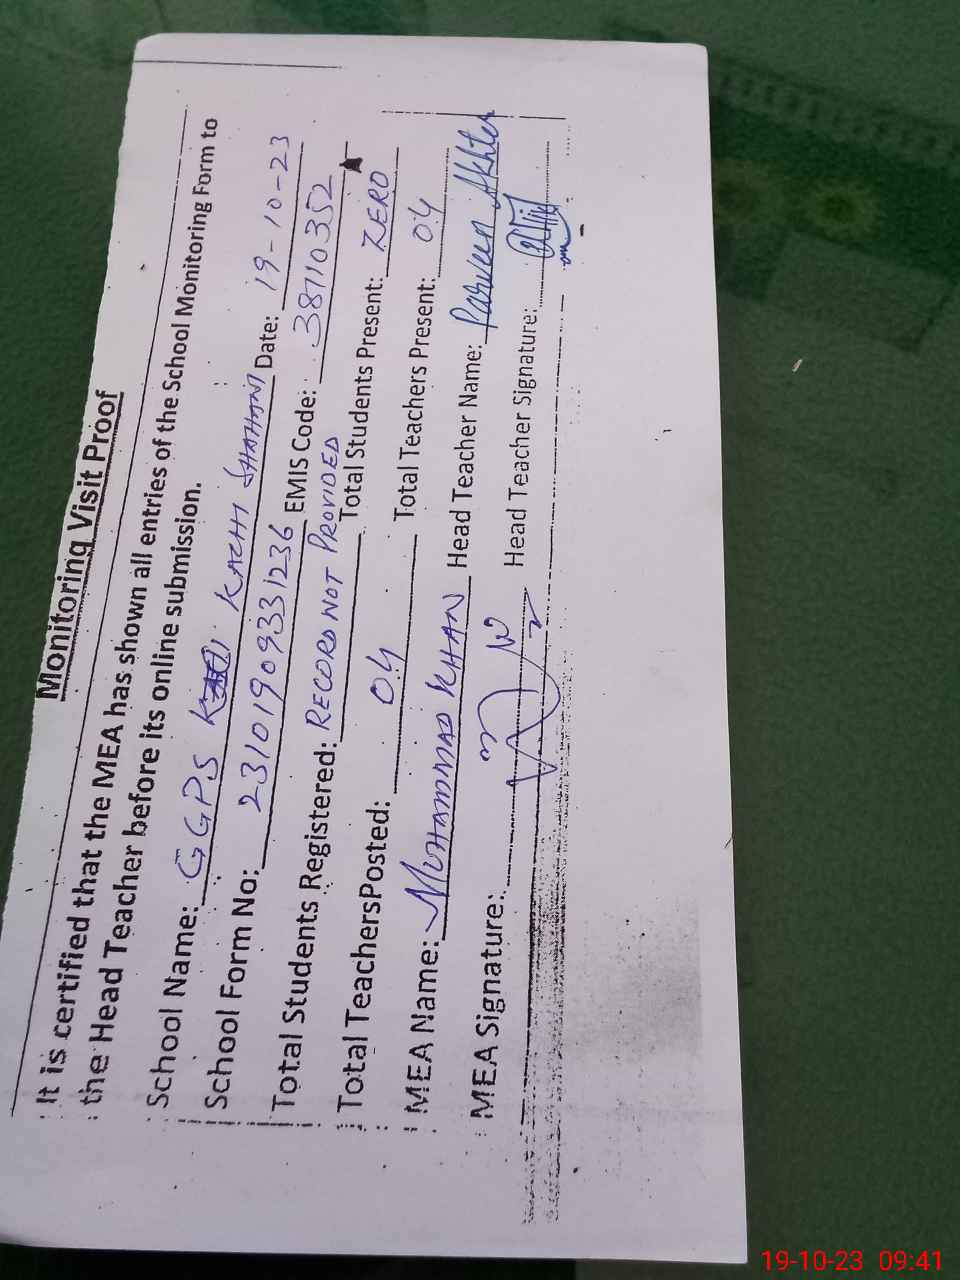 Monitoring Visit Proof
It is certified that the MEA has shown all entries of the School Monitoring Form to
the Head Teacher before its online submission.
School Name: GGPS KACHI SHAHANI Date: 19-10-23
School Form No: 23101909331236 EMIS Code: 38110352
Total Students Registered: RECORD NOT PROVIDED Total Students Present: ZERO
Total TeachersPosted: 04 Total Teachers Present: 04
MEA Name: MUHAMMAD KHAN Head Teacher Name: Parveen Akhter
MEA Signature: Head Teacher Signature:
19-10-23 09:41